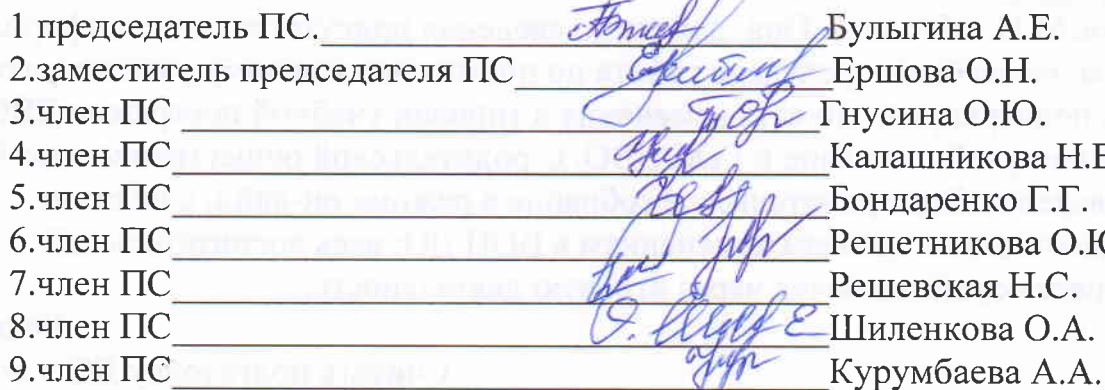 1 председатель ПС. Булыгина А.Е.
2.заместитель председателя ПС Ершова О.Н.
3.член ПС Гнусина О.Ю.
4.член ПС Калашникова Н.
5.член ПС Бондаренко Г.Г.
6.член ПС Решетникова О.Ю
7.член ПС Решевская Н.С.
8.член ПС Шиленкова О.А.
9.член ПС Курумбаева А.А.